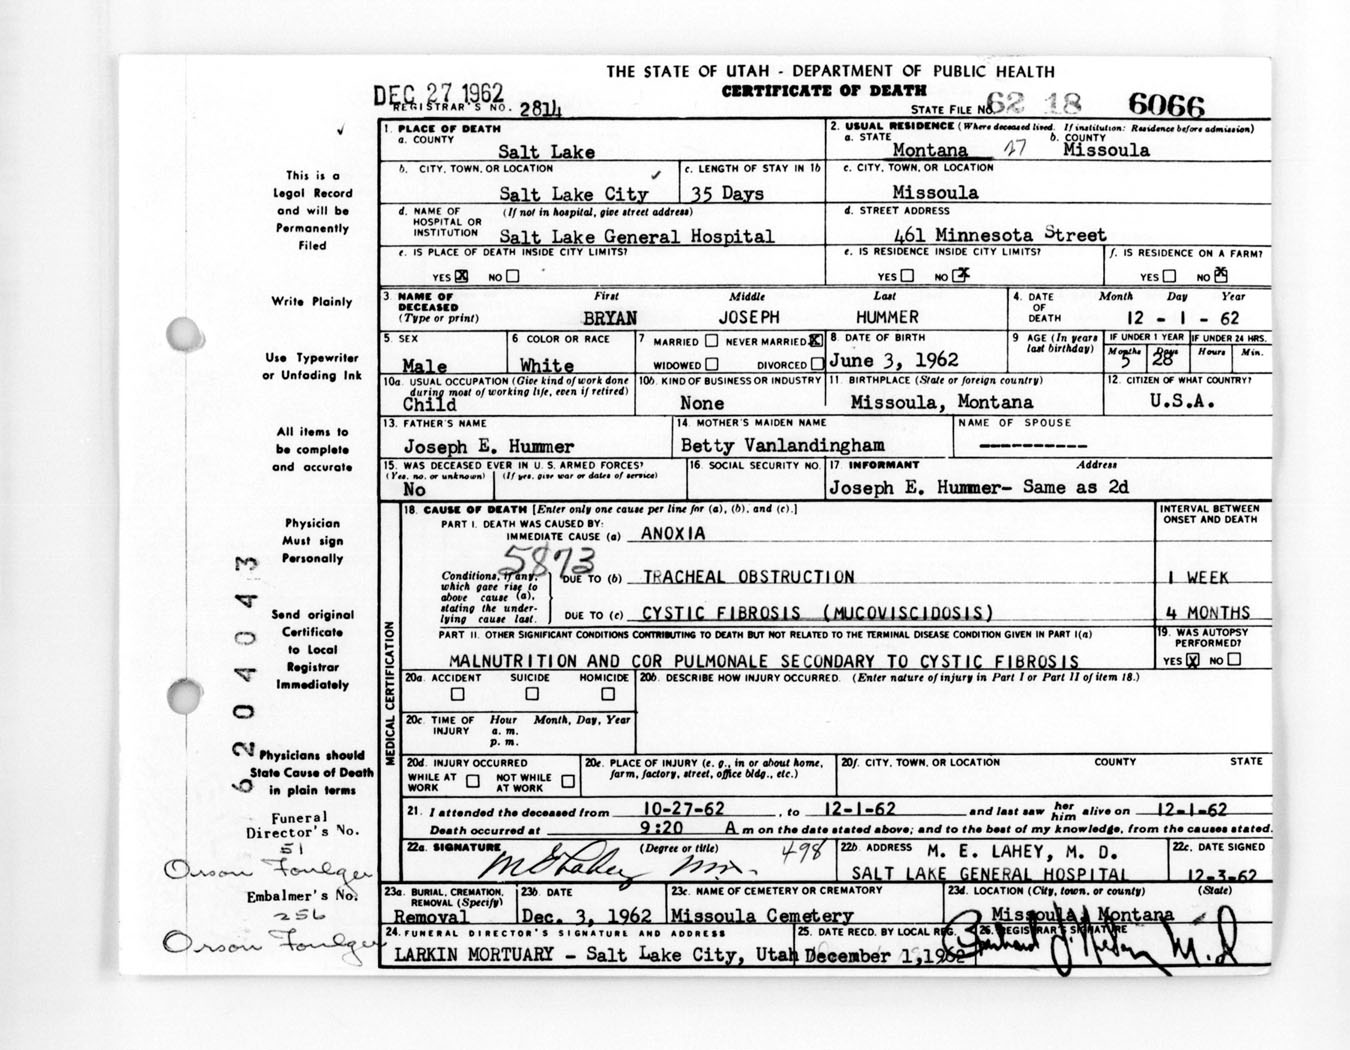 THE STATE OF UTAH - DEPARTMENT OF PUBLIC HEALTH
DEC 27 1962 CERTIFICATE OF DEATH
REGISTRAR'S NO. 2814 STATE FILE NO. 62 18 6066
1. PLACE OF DEATH
a. COUNTY
Salt Lake
2. USUAL RESIDENCE (Where deceased lived. If institution: Residence before admission)
a. STATE b. COUNTY
Montana 27 Missoula
b. CITY, TOWN, OR LOCATION
Salt Lake City
c. LENGTH OF STAY IN 1b
35 Days
c. CITY, TOWN, OR LOCATION
Missoula
d. NAME OF HOSPITAL OR INSTITUTION (If not in hospital, give street address)
Salt Lake General Hospital
d. STREET ADDRESS
461 Minnesota Street
e. IS PLACE OF DEATH INSIDE CITY LIMITS?
YES X NO
e. IS RESIDENCE INSIDE CITY LIMITS?
YES NO X
f. IS RESIDENCE ON A FARM?
YES NO X
3. NAME OF DECEASED (Type or print)
First Middle Last
BRYAN JOSEPH HUMMER
4. DATE OF DEATH
Month Day Year
12 - 1 - 62
5. SEX
Male
6 COLOR OR RACE
White
7 MARRIED NEVER MARRIED X
WIDOWED DIVORCED
8. DATE OF BIRTH
June 3, 1962
9 AGE (In years last birthday)
IF UNDER 1 YEAR IF UNDER 24 HRS.
Months Days Hours Min.
5 28
10a. USUAL OCCUPATION (Give kind of work done during most of working life, even if retired)
Child
10b. KIND OF BUSINESS OR INDUSTRY
None
11. BIRTHPLACE (State or foreign country)
Missoula, Montana
12. CITIZEN OF WHAT COUNTRY?
U.S.A.
13. FATHER'S NAME
Joseph E. Hummer
14. MOTHER'S MAIDEN NAME
Betty Vanlandingham
NAME OF SPOUSE
----------
15. WAS DECEASED EVER IN U. S. ARMED FORCES?
(Yes, no, or unknown) (If yes, give war or dates of service)
No
16. SOCIAL SECURITY NO.
17. INFORMANT Address
Joseph E. Hummer- Same as 2d
18. CAUSE OF DEATH [Enter only one cause per line for (a), (b), and (c).]
INTERVAL BETWEEN ONSET AND DEATH
PART I. DEATH WAS CAUSED BY:
IMMEDIATE CAUSE (a) ANOXIA
5873
Conditions, if any, which gave rise to above cause (a), stating the underlying cause last.
DUE TO (b) TRACHEAL OBSTRUCTION 1 WEEK
DUE TO (c) CYSTIC FIBROSIS (MUCOVISCIDOSIS) 4 MONTHS
PART II. OTHER SIGNIFICANT CONDITIONS CONTRIBUTING TO DEATH BUT NOT RELATED TO THE TERMINAL DISEASE CONDITION GIVEN IN PART I(a)
MALNUTRITION AND COR PULMONALE SECONDARY TO CYSTIC FIBROSIS
19. WAS AUTOPSY PERFORMED?
YES X NO
MEDICAL CERTIFICATION
20a. ACCIDENT SUICIDE HOMICIDE
20b. DESCRIBE HOW INJURY OCCURRED. (Enter nature of injury in Part I or Part II of item 18.)
20c. TIME OF INJURY Hour Month, Day, Year
a. m.
p. m.
20d. INJURY OCCURRED
WHILE AT WORK NOT WHILE AT WORK
20e. PLACE OF INJURY (e. g., in or about home, farm, factory, street, office bldg., etc.)
20f. CITY, TOWN, OR LOCATION COUNTY STATE
21. I attended the deceased from 10-27-62, to 12-1-62 and last saw her him alive on 12-1-62
Death occurred at 9:20 A m on the date stated above; and to the best of my knowledge, from the causes stated.
22a. SIGNATURE (Degree or title) 498
M E Lahey M.D.
22b. ADDRESS M. E. LAHEY, M. D.
SALT LAKE GENERAL HOSPITAL
22c. DATE SIGNED
12-3-62
23a. BURIAL, CREMATION, REMOVAL (Specify)
Removal
23b. DATE
Dec. 3, 1962
23c. NAME OF CEMETERY OR CREMATORY
Missoula Cemetery
23d. LOCATION (City, town, or county) (State)
Missoula, Montana
24. FUNERAL DIRECTOR'S SIGNATURE AND ADDRESS
LARKIN MORTUARY - Salt Lake City, Utah
25. DATE RECD. BY LOCAL REG.
December 1, 1962
26. REGISTRAR'S SIGNATURE
M.D
This is a
Legal Record
and will be
Permanently
Filed
Write Plainly
Use Typewriter
or Unfading Ink
All items to
be complete
and accurate
Physician
Must sign
Personally
Send original
Certificate
to Local
Registrar
Immediately
Physicians should
State Cause of Death
in plain terms
Funeral
Director's No.
51
Orson Foulger
Embalmer's No.
256
Orson Foulger
6204043